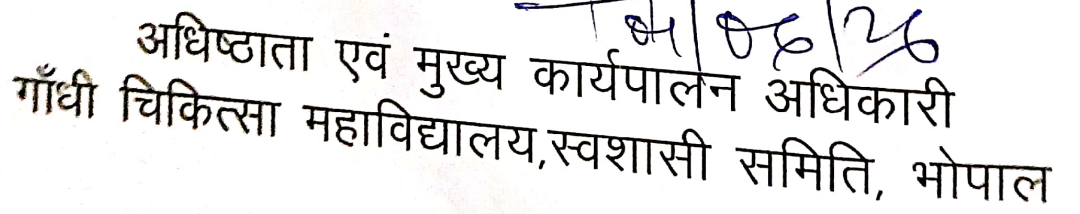 अधिष्ठाता एवं मुख्य कार्यपालन अधिकारी
गाँधी चिकित्सा महाविद्यालय,स्वशासी समिति, भोपाल